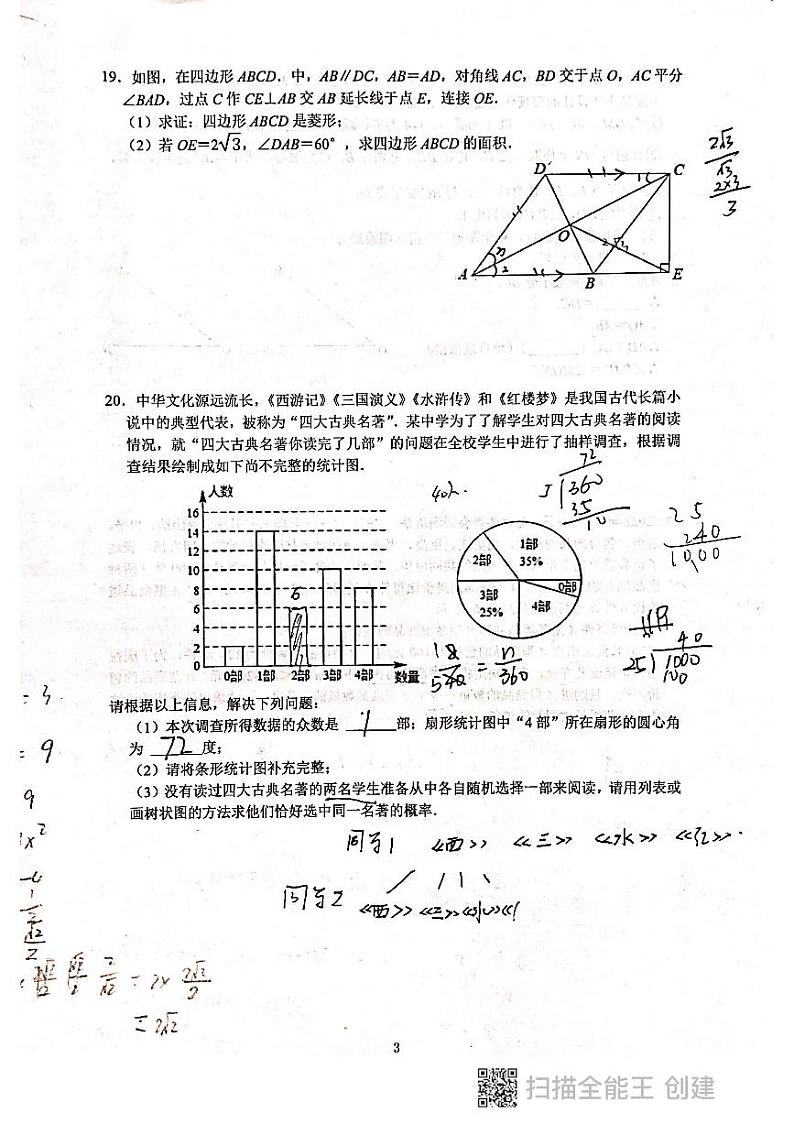 19. 如图，在四边形ABCD中，AB∥DC，AB=AD，对角线AC，BD交于点O，AC平分
∠BAD，过点C作CE⊥AB交AB延长线于点E，连接OE．
（1）求证：四边形ABCD是菱形；
（2）若OE=2√3，∠DAB=60°，求四边形ABCD的面积．
2√3
√3
2×3
3
D
C
O
1
2
A
B
E
20. 中华文化源远流长，《西游记》《三国演义》《水浒传》和《红楼梦》是我国古代长篇小
说中的典型代表，被称为“四大古典名著”．某中学为了了解学生对四大古典名著的阅读
情况，就“四大古典名著你读完了几部”的问题在全校学生中进行了抽样调查，根据调
查结果绘制成如下尚不完整的统计图．
人数
16
14
12
10
8
6
4
2
0
6
0部 1部 2部 3部 4部 数量
40人
1部
35%
2部
3部
25%
4部
0部
72
5 360
35
10
25
240
1000
40
25 1000
100
n
=
360
请根据以上信息，解决下列问题：
（1）本次调查所得数据的众数是 1 部；扇形统计图中“4部”所在扇形的圆心角
为 72 度；
（2）请将条形统计图补充完整；
（3）没有读过四大古典名著的两名学生准备从中各自随机选择一部来阅读，请用列表或
画树状图的方法求他们恰好选中同一名著的概率．
= 3
= 9
9
x²
-4
同学1 《西》 《三》 《水》 《红》
同学2 《西》《三》《水》《
= 2×
2√2
2
= 2√2
3
扫描全能王 创建